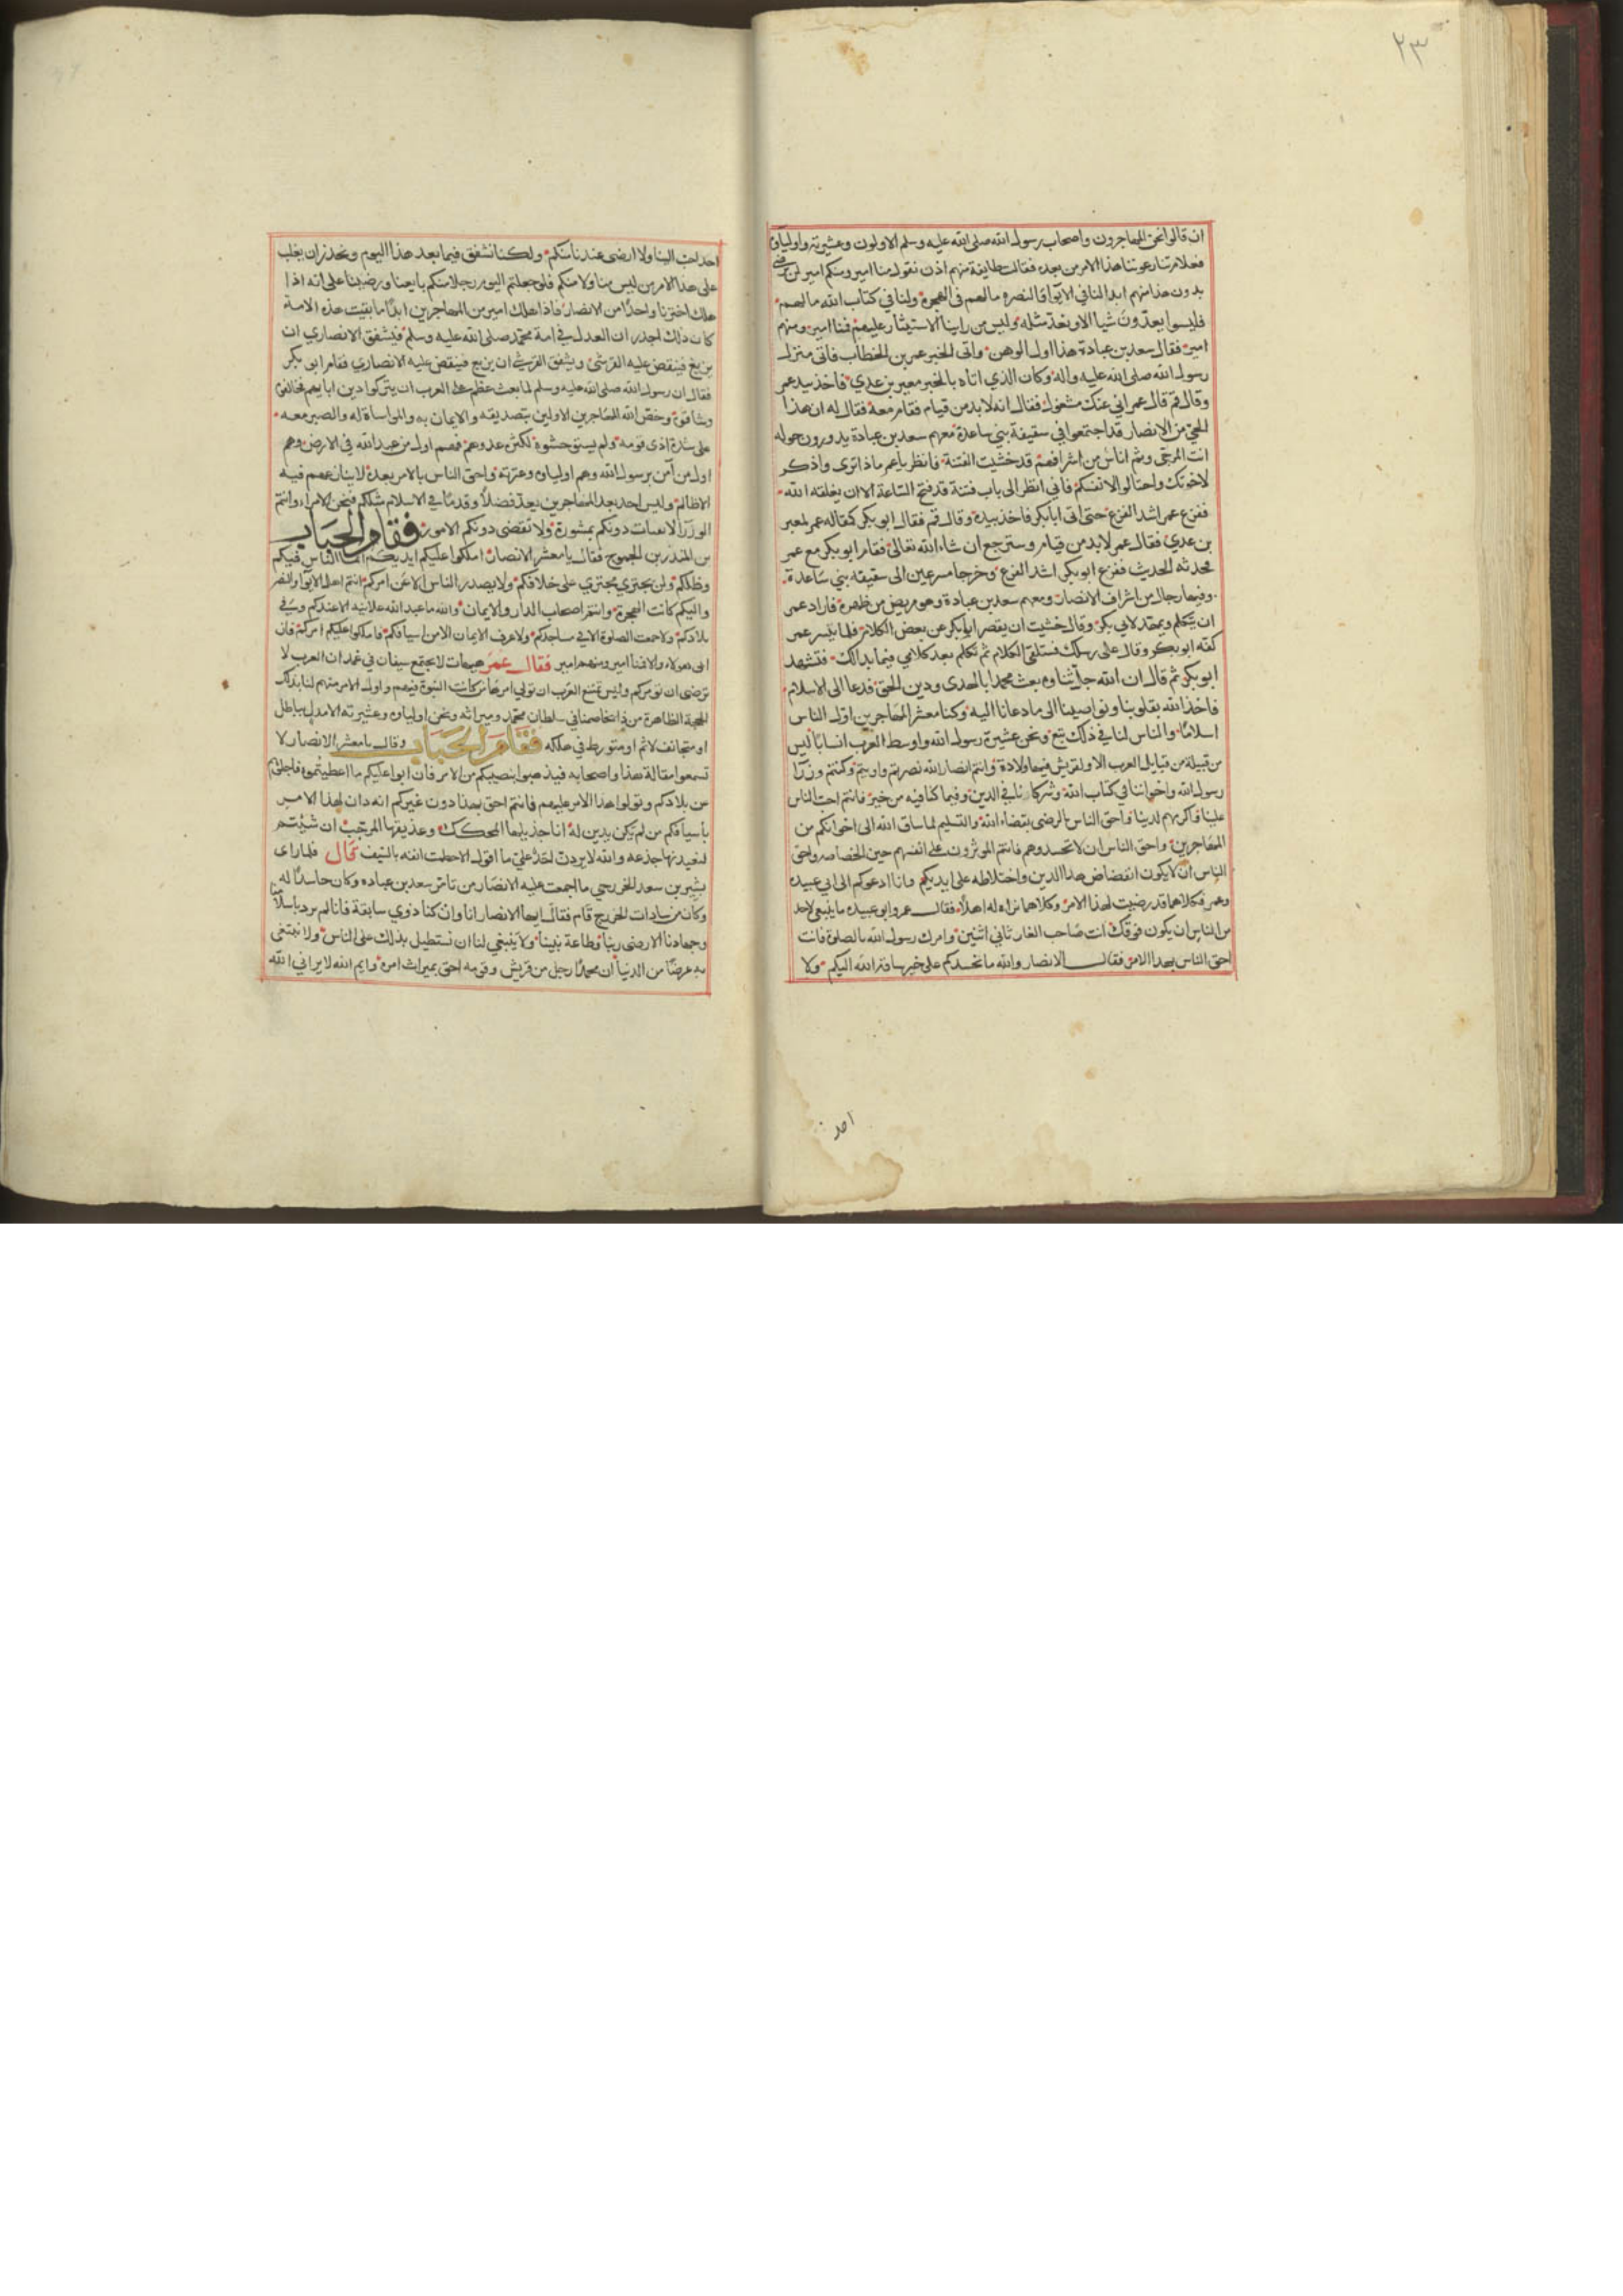 ٢٣
ان قالوا نحن المهاجرون واصحاب رسول الله صلى الله عليه وسلم الاولون وعشيرته واولياؤه
فعلام تنازعوننا هذا الامر من بعده فقالت طايفة منهم اذن نقول منا امير ومنكم امير لن نرضى
بدون هذا منهم ابدا لنا في الايواء والنصره مالهم في الهجرة ولنا في كتاب الله مالهم
فليسوا يعدون شيا الا ونعد مثله وليس من راينا الاستيثار عليهم فمنا امير ومنهم
امير فقال سعد بن عبادة هذا اول الوهن واتى الخبر عمر بن الخطاب فاتى منزل
رسول الله صلى الله عليه واله وكان الذي اتاه بالخبر معبر بن عدي فاخذ بيد عمر
وقال قم قال عمر اني عنك مشغول فقال انه لا بد من قيام فقام معه فقال له ان هذا
الحي من الانصار قد اجتمعوا في سقيفة بني ساعدة معهم سعد بن عبادة يدورون حوله
انت المرجى وثم اناس من اشرافهم قد خشيت الفتنة فانظر ياعمر ماذا ترى واذكر
لاخوتك واحتالوا لانفسكم فاني انظر الى باب فتنة قد فتح الساعة الا ان يغلقه الله
ففزع عمر اشد الفزع حتى اتى ابا بكر فاخذ بيده وقال قم فقال ابو بكر كمقاله عمر لمعبر
بن عدي فقال عمر لا بد من قيام وسنرجع ان شاء الله تعالى فقام ابو بكر مع عمر
فحدثه الحديث ففزع ابو بكر اشد الفزع وخرجا مسرعين الى سقيفة بني ساعدة
وفيها رجال من اشراف الانصار ومعهم سعد بن عبادة وهو مريض من ظهره فاراد عمر
ان يتكلم ويمهد لابي بكر وقال خشيت ان يقصر ابا بكر عن بعض الكلام فلما تيسر عمر
كفه ابو بكر وقال على رسلك فستلقى الكلام ثم تكلم بعد كلامي فيما بدالك فتشهد
ابو بكر ثم قال ان الله جل ثناوه بعث محمدا بالهدى ودين الحق فدعا الى الاسلام
فاخذ الله بقلوبنا ونواصينا الى ما دعانا اليه وكنا معشر المهاجرين اول الناس
اسلاما والناس لنا في ذلك تبع ونحن عشيرة رسول الله واوسط العرب انسابا ليس
من قبيلة من قبايل العرب الا ولقريش فيها ولادة وانتم انصار الله نصرتم واويتم وكنتم وزرا
رسول الله واخواننا في كتاب الله وشركاونا في الدين وفيما كنا فيه من خير فانتم احب الناس
علينا واكرمهم لدينا واحق الناس بالرضى بقضاء الله والتسليم لما ساق الله الى اخوانكم من
المهاجرين واحق الناس ان لا تحسدوهم فانتم الموثرون على انفسهم حين الخصاصه واحق
الناس ان لا يكون انفضاض هذا الدين واختلاطه على ايديكم وانا ادعوكم الى ابي عبيده
وعمر فكلاهما قد رضيت لهذا الامر وكلاهما نراه له اهلا فقال عمر وابو عبيده ما ينبغي لاحد
من الناس ان يكون فوقك انت صاحب الغار ثاني اثنين وامرك رسول الله بالصلوة فانت
احق الناس بهذا الامر فقال الانصار والله ما نحسدكم على خير ساقه الله اليكم ولا
احد
احد احب الينا ولا ارضى عندنا منكم ولكنا نشفق فيما بعد هذا اليوم ونحذر ان يغلب
على هذا الامر من ليس منا ولا منكم فلو جعلتم اليوم رجلا منكم بايعنا ورضينا على انه اذا
هلك اخترنا واحدا من الانصار فاذا هلك امير من المهاجرين ابدا ما بقيت هذه الامة
كان ذلك اجدر ان العدل في امة محمد صلى الله عليه وسلم فيشفق الانصاري ان
يزيغ فينقض عليه القرشي ويشفق القرشي ان يزيغ فينقض عليه الانصاري فقام ابو بكر
فقال ان رسول الله صلى الله عليه وسلم لما بعث عظم على العرب ان يتركوا دين ابايهم فخالفوه
وشاقوه وخص الله المهاجرين الاولين بتصديقه والايمان به والمواساة له والصبر معه
على شدة اذى قومه ولم يستوحشوا لكثرة عدوهم فهم اول من عبد الله في الارض وهم
اول من آمن برسول الله وهم اولياوه وعترته واحق الناس بالامر بعده لا ينازعهم فيه
الا ظالم وليس احد بعد المهاجرين يعد فضلا وقدما في الاسلام مثلكم فنحن الامراء وانتم
الوزرا لا نفتات دونكم بمشورة ولا نقضي دونكم الامور فقام الحباب
بن المنذر بن الجموح فقال يا معشر الانصار املكوا عليكم ايديكم انما الناس فيكم
وظلكم ولن يجتري مجتري على خلافكم ولا يصدر الناس الا عن امركم انتم اهل الايواء والنصر
واليكم كانت الهجرة وانتم اصحاب الدار والايمان والله ما عبد الله علانية الا عندكم وفي
بلادكم ولا جمعت الصلوة الا في مساجدكم ولا عرف الايمان الا من اسيافكم فاملكوا عليكم امركم فان
ابى هولاء والا فمنا امير ومنهم امير فقال عمر هيهات لا يجتمع سيفان في غمد ان العرب لا
ترضى ان تومركم وليس تمتنع العرب ان تولي امرها من كانت النبوة فيهم واول الامر منهم لنا بذلك
الحجة الظاهرة من ذا يخاصمنا في سلطان محمد وميراثه ونحن اولياوه وعشيرته الا مدل بباطل
او متجانف لاثم او متورط في هلكه فقام الحباب وقال يا معشر الانصار لا
تسمعوا مقالة هذا واصحابه فيذهبوا بنصيبكم من الامر فان ابوا عليكم ما اعطيتموه فاجلوهم
من بلادكم وتولوا هذا الامر عليهم فانتم احق بهذا دون غيركم انه دان لهذا الامر
باسيافكم من لم يكن يدين له انا جذيلها المحكك وعذيقها المرجب ان شئتم
لنعيدنها جذعه والله لا يردن احد علي ما اقول الا حطمت انفه بالسيف قال فلما راى
بشير بن سعد الخزرجي ما اجمعت عليه الانصار من تامر سعد بن عباده وكان حاسدا له
وكان من سادات الخزرج قام فقال ايها الانصار انا وان كنا ذوي سابقة فانا لم نرد باسلامنا
وجهادنا الا رضى ربنا وطاعة نبينا ولا ينبغي لنا ان نستطيل بذلك على الناس ولا نبتغى
به عرضا من الدنيا ان محمدا رجل من قريش وقومه احق بميراث امره وايم الله لا يراني الله